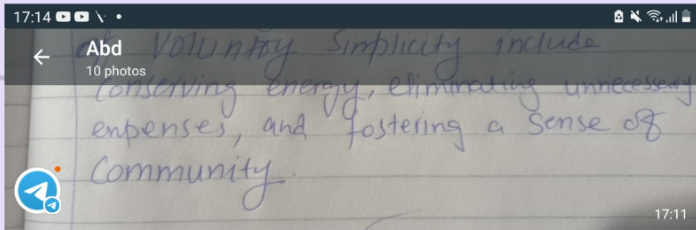 17:14
Abd
10 photos
of Voluntry Simplicity include
Conserving energy, eliminating unnecessery
enpenses, and fostering a Sense of
Community.
17:11